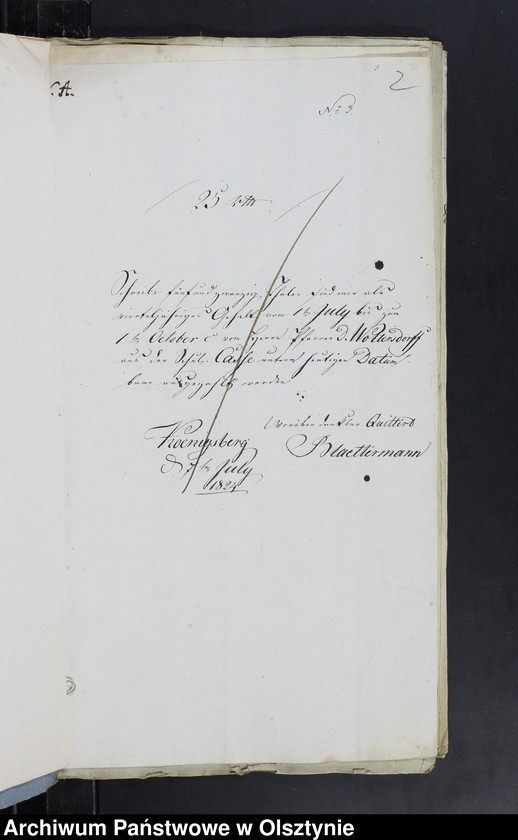 C. A.
2
No 3
25 rth
Schreibe fünfundzwanzig Thaler sind mir als
vierteljähriges Gehalt vom 1t July bis zum
1t October c von Herrn Pfarrer D. Woltersdorff
aus der Schul. Casse unterm heutigen Datum
baar ausgezahlt worden
worüber dankbar Quittirt
Koenigsberg
Blaettermann
d 7t July
1824
Archiwum Państwowe w Olsztynie